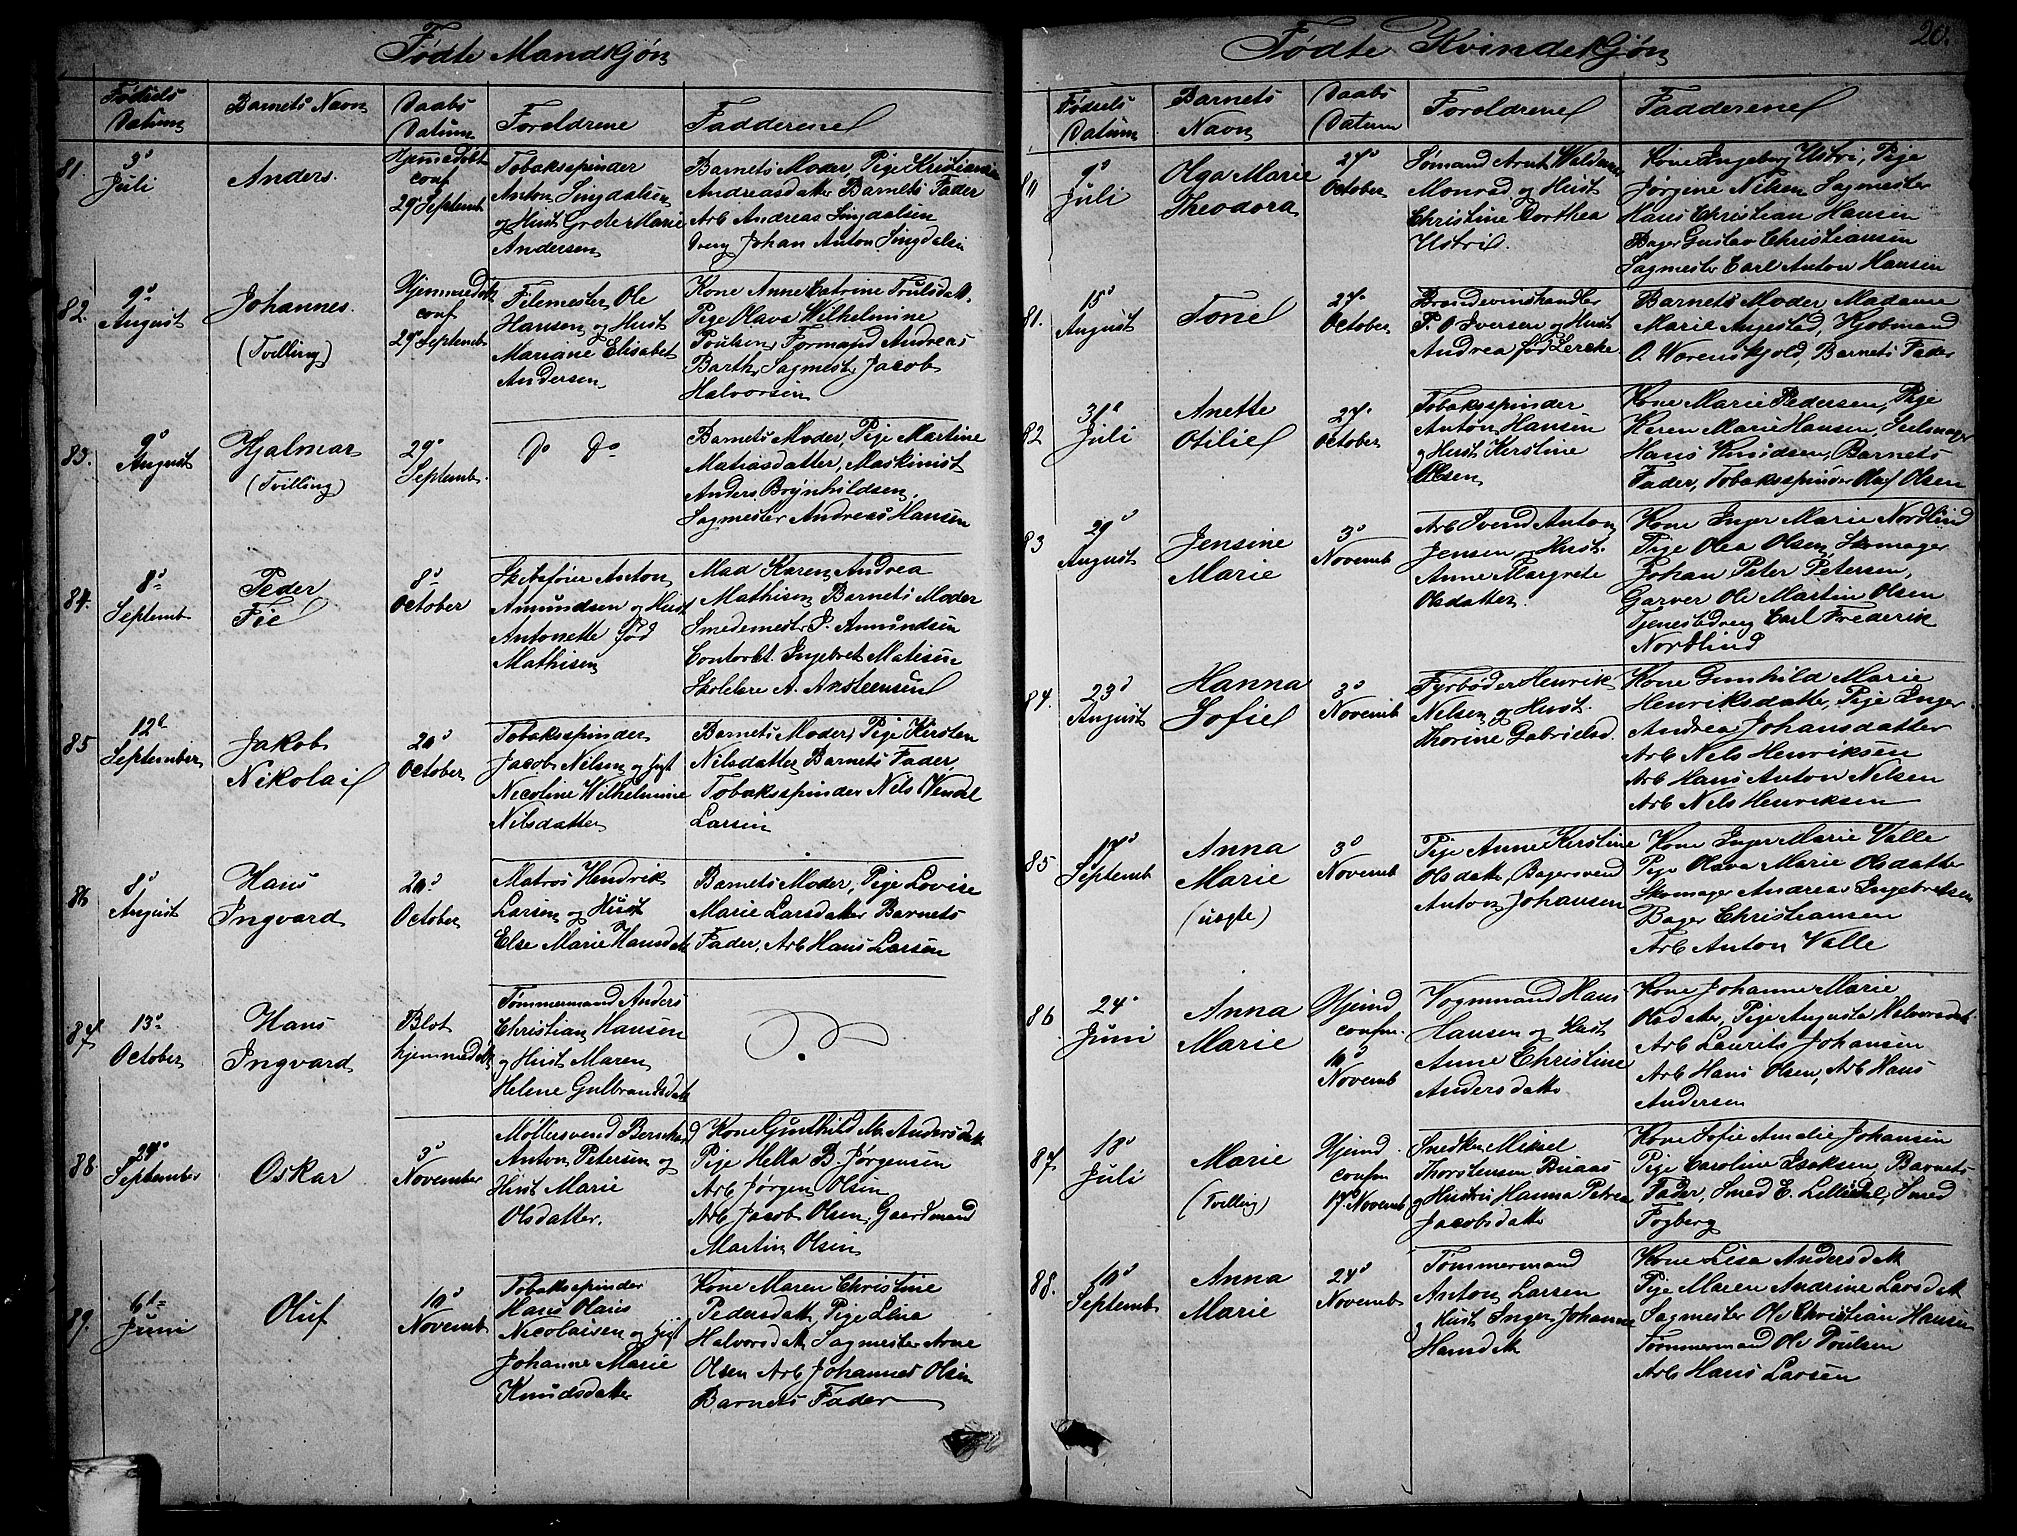 Fødte Mandkjøn
Fødsels
Datum
Barnets Navn
Daabs
Datum
Foreldrene
Fadderene
81.
3d
Juli
Anders.
Hjemmedøbt
conf
29 Septemb
Tobaksspinder
Anton Lingdalsen
og Hust Grete Marie
Andersen
Barnets Moder, Pige Kristiansine
Andreasdatter Barnets Fader
Arb Andreas Lingdalsen
Dreng Johan Anton Lingdalsen
82.
9d
August
Johannes.
(Tvilling)
Hjemmedøbt
conf
29d Septemb
Filemester Ole
Hansen og Hust
Mariane Elisabet
Andersen
Kone Anne Catrine Trulsdatt.
Pige Olava Wilhelmine
Poulsen, Formand Andreas
Barth, Sagmester Jacob
Halvorsen
83.
9d
August
Hjalmar
(Tvilling)
29d
Septemb.
Do Do
Barnets Moder, Pige Martine
Matiasdatter, Maskinist
Anders Brynhildsen,
Sagmester Andreas Hansen
84.
8d
Septemb
Peder
Fie
8d
October
Anton
Amundsen og Hust
Antonette fød
Mathisen
Mad Karen Andrea
Mathisen Barnets Moder
Smedemester P. Amundsen
Contorbt. Ingebret Matisen
Skolelærer A. Aksteensen
85
12d
September
Jakob
Nikolai
20d
October
Tobaksspinder
Jacob Nilsen og Hust
Nicoline Wilhelmine
Nilsdatter
Barnets Moder, Pige Kirsten
Nilsdatter Barnets Fader,
Tobaksspinder Nils Wendel
Larsen
86
8d
August
Hans
Ingvard
20d
October
Matros Hendrik
Larsen og Hust
Else Marie Hansdatt
Barnets Moder, Pige Lovise
Marie Larsdatter Barnets
Fader, Arb Hans Larsen
87
13d
October
Hans
Ingvard
Blot
hjemmedøbt
Tømmermand Anders
Christian Hansen
og Hust Maren
Helene Gulbrandsdatt
88
29d
September
Oskar
3d
November
Møllersvend Bernhard
Anton Petersen og
Hust Marie
Olsdatter.
Kone Gunhild M. Andersdatt
Pige Hella B. Jørgensen
Arb Jørgen Olsen
Arb Jacob Olsen, Gaardmand
Martin Olsen
89.
6te
Juni
Oluf
10d
Novemb
Tobaksspinder
Hans Olaus
Nicolaisen og Hust
Johanne Marie
Knudsdatter
Kone Maren Christine
Pedersdatt, Pige Lina
Halvorsdatt Sagmester Arne
Olsen Arb Johannes Olsen
Barnets Fader
Fødte Kvindekjøn
20.
Fødsels
Datum
Barnets
Navn
Daabs
Datum
Foreldrene
Fadderene
80
9d
Juli
Olga Marie
Theodora
27d
October
Sømand Arnt Waldemar
Monrad og Hust
Christine Dorthea
Ustvi.
Kone Ingeborg Ustvi, Pige
Jørgine Nilsen Sagmester
Hans Christian Hansen
Bager Gustav Christiansen
Sagmester Carl Anton Hansen
81.
15d
August
Tone
27d
October
Brændevinshandler
P. O. Iversen og Hust
Andrea fød Lercke
Barnets Moder Madame
Marie Angestad, Kjøbmand
O. Werenskjold, Barnets Fader
82
31d
Juli
Anette
Otilie
27d
October
Tobaksspinder
Anton Hansen
og Hust Kerstine
Olsen
Kone Marie Pedersen, Pige
Karen Marie Hansen, Seilmager
Hans Knudsen, Barnets
Fader, Tobaksspinder Olaf Olsen
83
29d
August
Jensine
Marie
3d
Novemb
Arb Svend Anton
Jensen og Hust.
Anne Margrete
Olsdatter.
Kone Inger Marie Nordlind
Pige Olea Olsen, Skomager
Johan Peter Petersen,
Garver Ole Martin Olsen
Tjenestedreng Carl Frederik
Nordlind
84.
23d
August
Hanna
Sofie
3d
Novemb
Fyrbøder Henrik
Nelsen og Hust.
Thorine Gabrielsd.
Kone Gunhild Marie
Henriksdatter, Pige Inger
Andrea Johansdatter
Arb Nels Henriksen
Arb Hans Anton Nelsen
Arb Nels Henriksen
85
17d
Septemb
Anna
Marie
(uægte)
3d
Novemb
Pige Anne Kerstine
Olsdatt, Bagersvend
Anton Johansen
Kone Inger Marie Valle
Pige Olava Marie Olsdatter
Skomager Andreas Ingebretsen
Bager Christiansen
Arb Anton Valle
86
24d
Juni
Anna
Marie
Hjemd
confm.
10d
Novemb
Vognmand Hans
Hansen og Hust
Anne Christine
Andersdatt
Kone Johanne Marie
Olsdatter, Pige Augusta Halvorsdatt
Arb Laurits Johansen
Arb Hans Olsen, Arb Hans
Andersen
87
18d
Juli
Marie
(Tvilling)
Hjemd
confm
17d Novemb
Snedker Mikel
Thorstensen Buaas
og Hustru Hanna Petrea
Jacobsdatt
Kone Sofie Amalie Johansen
Pige Caroline Isaksen, Barnets
Fader, Smed E. Lilledal, Smed
Fogberg
88.
10d
Septemb
Anna
Marie
24d
Novemb
Tømmermand
Anton Larsen
og Hust Inger Johanne
Hansdatt
Kone Lisa Andersdatt
Pige Maren Andrine Larsdatt
Sagmester Ole Christian Hansen
Tømmermand Ole Poulsen
Arb Hans Larsen